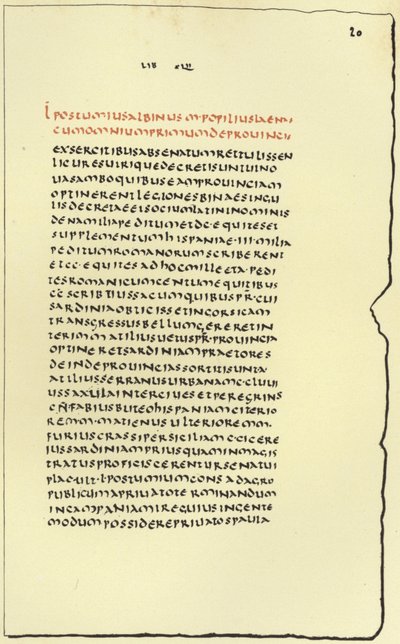 20
LIB XLII
L POSTUMIUSALBINUS M·POPILIUSLAENA
CUMOMNIUMPRIMUMDEPROUINCI
EXSERCITIBUSABSENATUMRETTULISSEN
LIGURESUTRIQUEDECRETISUNTUINO
UASAMBOQUIBUSEAMPROUINCIAM
OPTINERENTLEGIONESBINAESINGU
LISDECRETAEEISOCIUMLATININOMINIS
DENAMILIAPEDITUMETDC·EQUITESET
SUPPLEMENTUMHISPANIAE·III·MILIA
PEDITUMROMANORUMSCRIBERENT
ETCC·EQUITESADHOCMILLEETA·PEDI
TESROMANICUMCENTUMEQUITIBUS
SCRIBTIUSSACUMQUIBUSPR·CUI
SARDINIAOBTICISSETINCORSICAM
TRANSGRESSUSBELLUMGERERETIN
TERIMMATILIUSUETUSPR·PROUINCIA
OPTINERETSARDINIAMPRAETORES
DEINDEPROUINCIASSORTITISUNTA·
ATILIUSSERRANUSURBANAMC·CLUUI
USSAXULAINTERCIUESETPEREGRINS
CN̄FABIUSBUTEOHISPANIAMCITERIO
REMM·MATIENUSULTERIOREMM·
FURIUSCRASSIPESSICILIAMC·CICERE
IUSSARDINIAMPRIUSQUAMINMAGIS
TRATUSPROFICISCERENTURSENATUI
PLACUIT·L·POSTUMIUMCONSADAGRO
PUBLICUMAPRIUATOTERMINANDUM
INCAMPANIAMIREQUIUSINGENTE
MODUMPOSSIDEREPRIUATOSPAULA